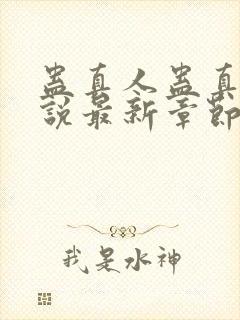 蛊真人蛊真
說最新章節
我是水神